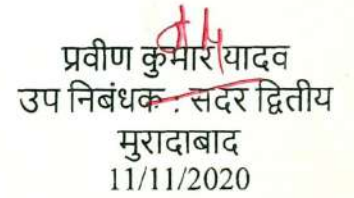 प्रवीण कुमार यादव
उप निबंधक : सदर द्वितीय
मुरादाबाद
11/11/2020